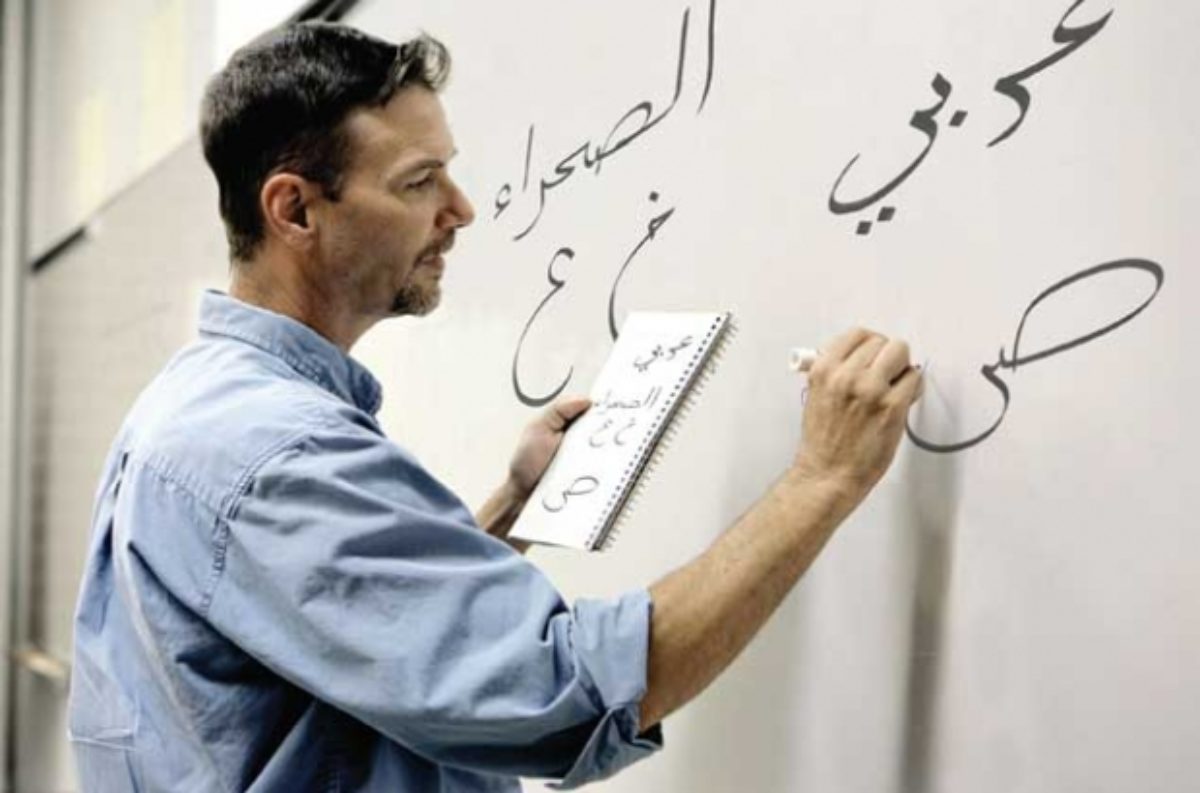 عربي
الصحراء
خ ع
ص
عربي
الصحراء
خ ع
ص